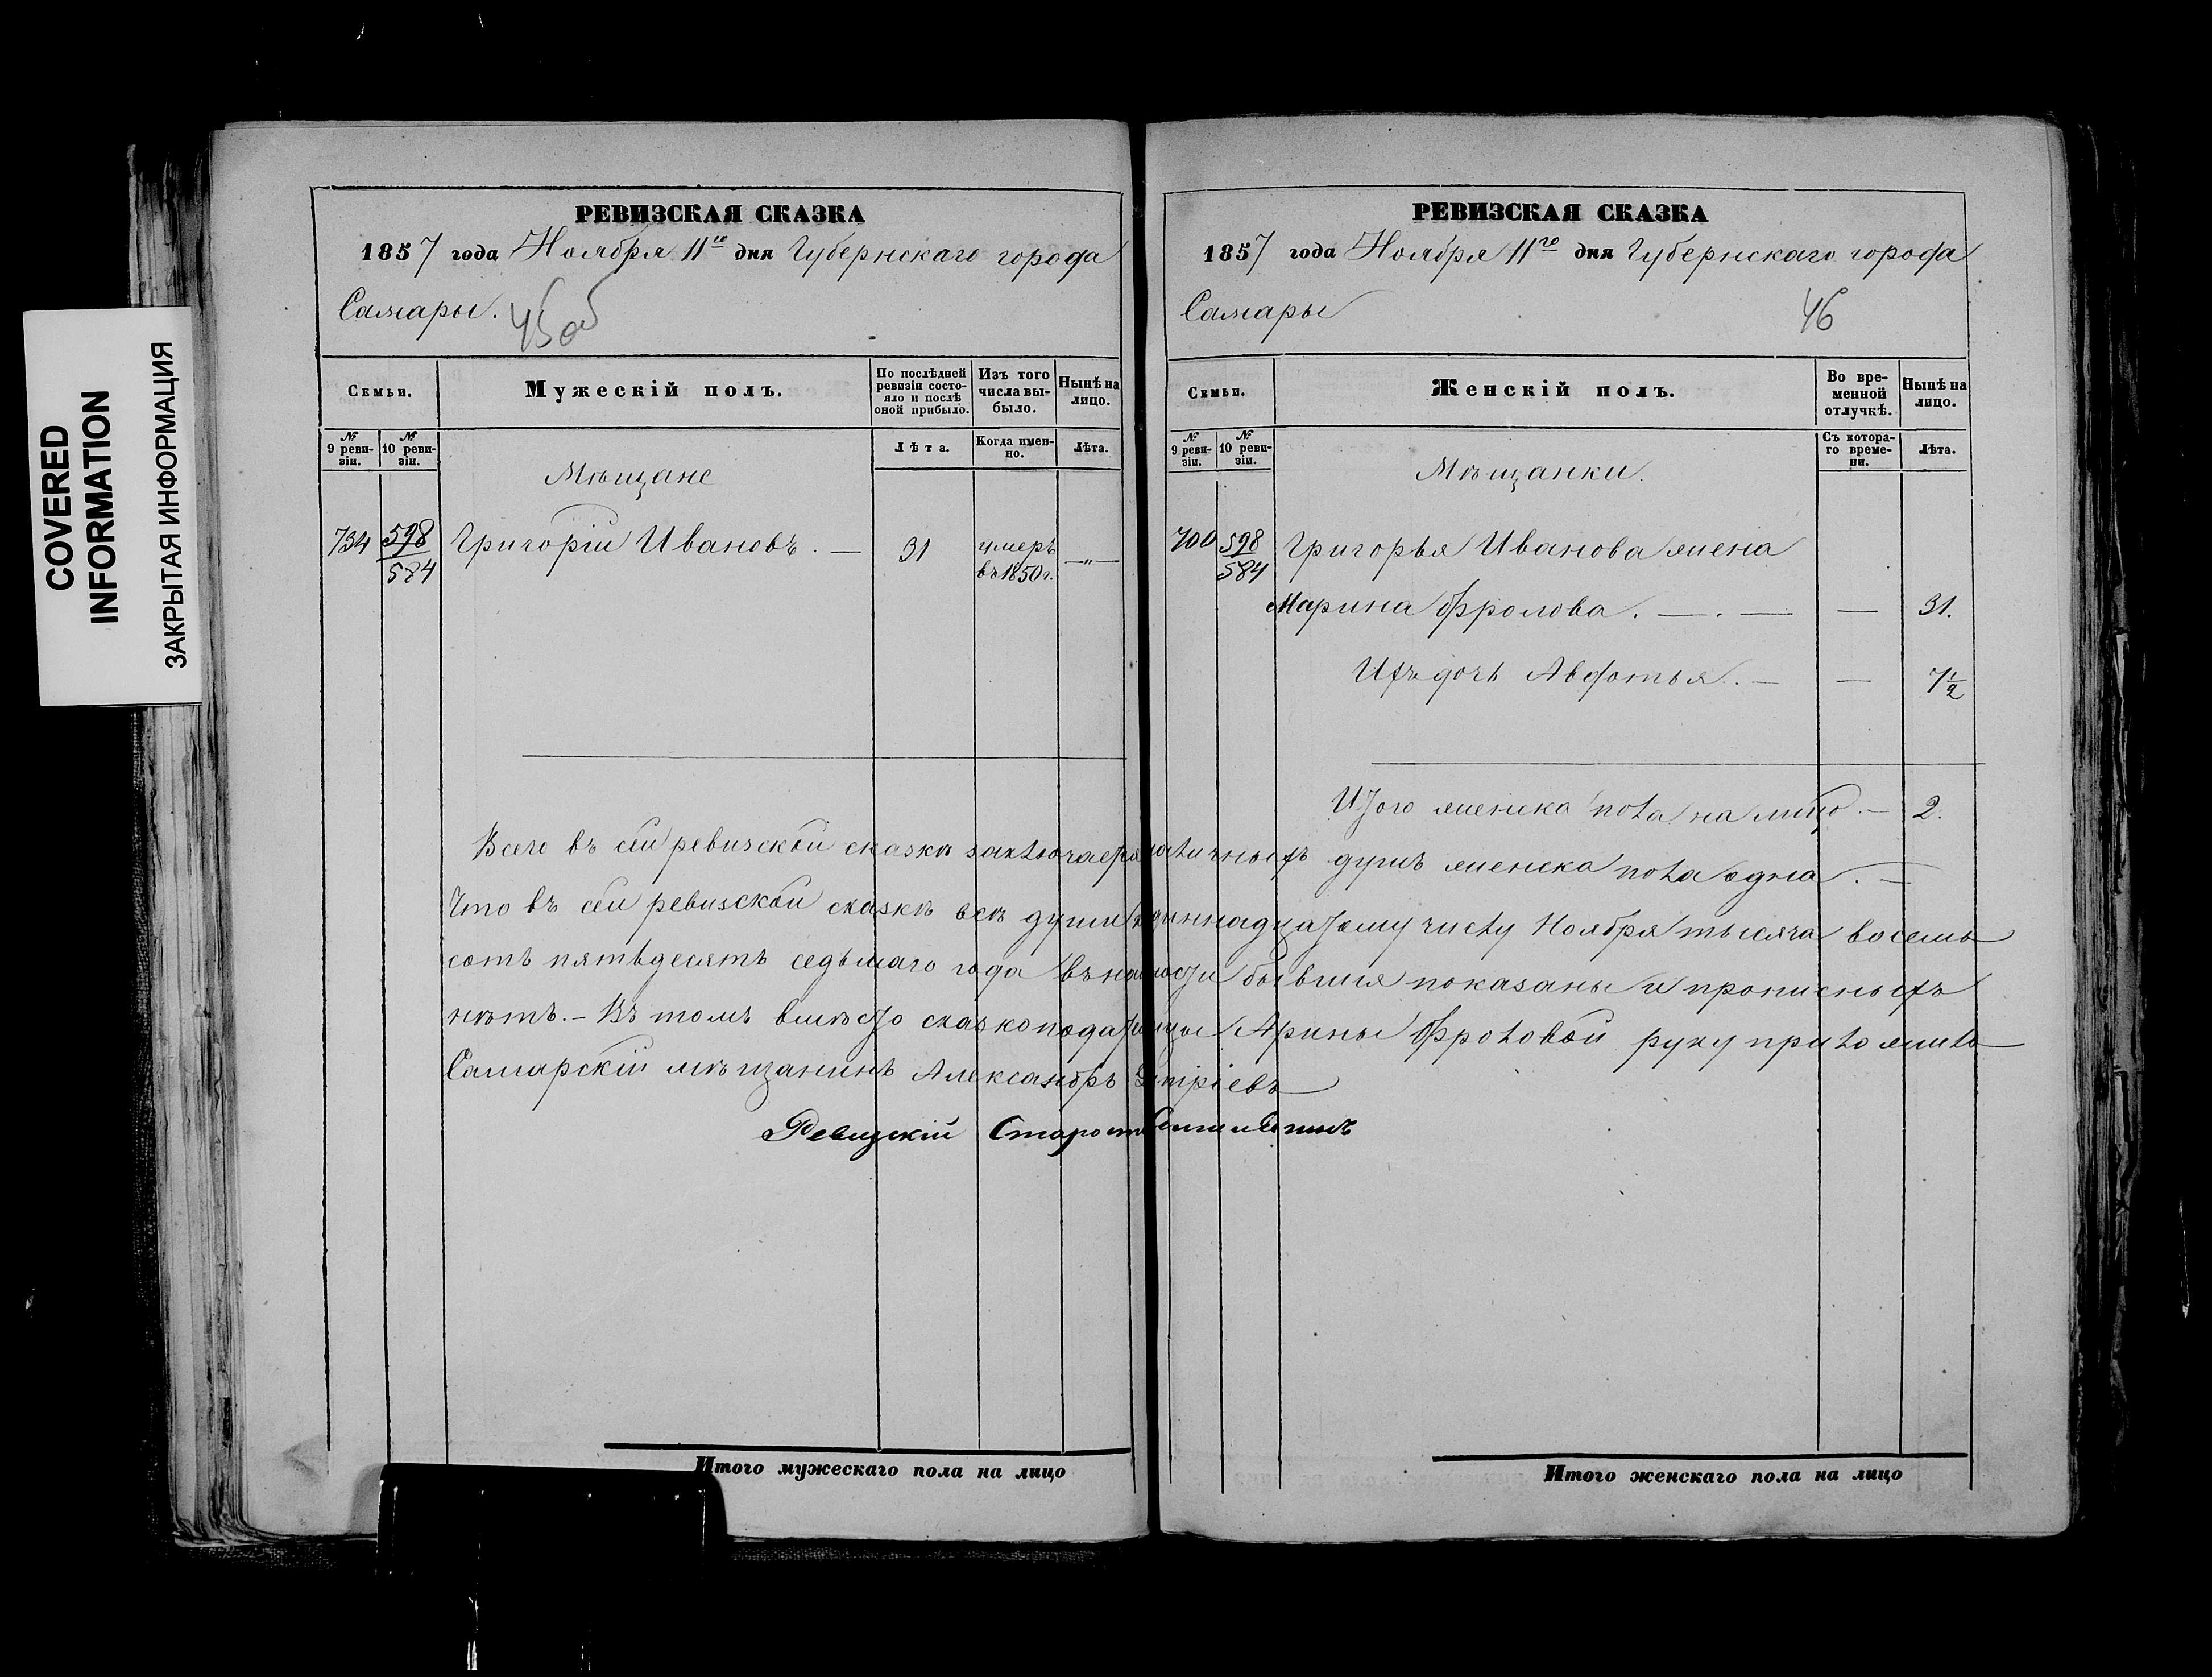 COVERED
INFORMATION
ЗАКРЫТАЯ ИНФОРМАЦИЯ
РЕВИЗСКАЯ СКАЗКА
1857 года Ноября 11го дня Губернскаго города
Самары. 45об
Семьи.
Мужескій полъ.
По послѣдней
ревизіи состо-
яло и послѣ
оной прибыло.
Изъ того
числа вы-
было.
Нынѣ на
лицо.
№
9 реви-
зіи.
№
10 реви-
зіи.
Лѣта.
Когда имен-
но.
Лѣта.
Мѣщане
734 598 Григорій Ивановъ. — 31 умеръ
584 въ 1850 г. —„—
Всего въ сей ревизской сказкѣ заключается наличныхъ душъ женска пола одна. —
Что въ сей ревизской сказкѣ всѣ души къ одиннадцатому числу Ноября тысяча восемь
сотъ пятьдесятъ седьмаго года въ бывшия показаны и прописныхъ
нѣтъ. — Въ томъ вмѣсто сказкоподательницы Арины Фроловой руку приложилъ
Самарскій мѣщанинъ Александръ
Ревизскій Староста
Итого мужескаго пола на лицо
РЕВИЗСКАЯ СКАЗКА
1857 года Ноября 11го дня Губернскаго города
Самары 46
Семьи.
Женскій полъ.
Во вре-
менной
отлучкѣ.
Нынѣ на
лицо.
№
9 реви-
зіи.
№
10 реви-
зіи.
Съ котора-
го време-
ни.
Лѣта.
Мѣщанки.
700 598 Григорья Иванова жена
584
Марина Фролова. — . — — 31.
Ихъ дочь Авдотья. — — 7½
Итого женска пола на лицо. — 2.
Итого женскаго пола на лицо